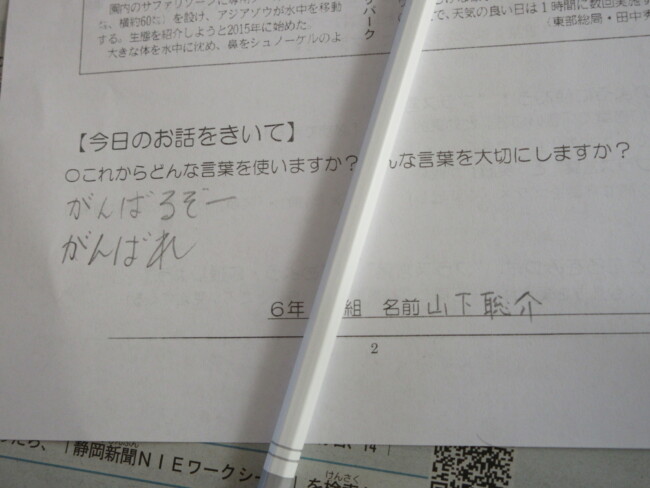 園内のサファリゾーンに
横約60㍍)を設け、アジアゾウが水中を移動
する。生態を紹介しようと2015年に始めた。
大きな体を水中に沈め、鼻をシュノーケルのよ
パーク
で、天気の良い日は1時間に数回実施
(東部総局・田中
【今日のお話をきいて】
○これからどんな言葉を使いますか?
んな言葉を大切にしますか?
がんばるぞー
がんばれ
6年 組 名前 山下聡介
2
「静岡新聞NIEワークシー
けんさく